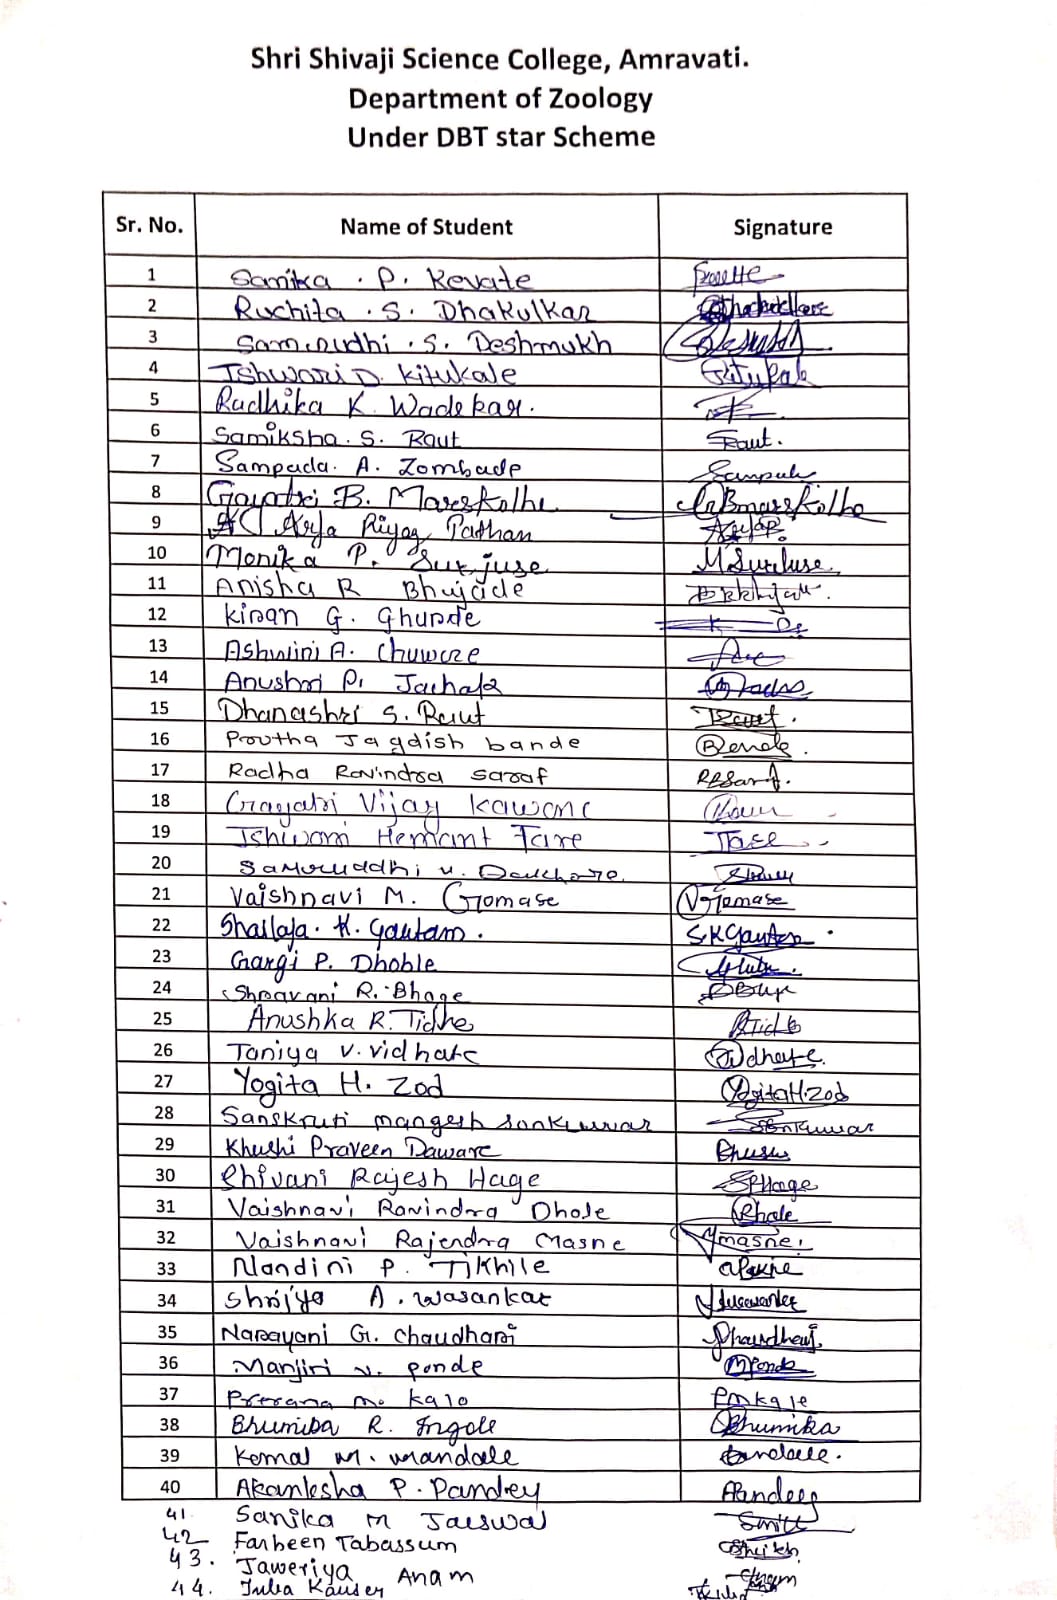 Shri Shivaji Science College, Amravati.
Department of Zoology
Under DBT star Scheme
Sr. No. Name of Student Signature
1 Sanika . P. Kevate
2 Ruchita . S. Dhakulkar
3 Samruddhi . S. Deshmukh
4 Ishwari D. Kitukale
5 Radhika K. Wadekar.
6 Samiksha. S. Raut Raut.
7 Sampada. A. Zombade
8 Gayatri B. Marskolhe GBmarskolhe
9 Arya Riyaz Pathan
10 Monika P. Surjuse MSurjuse
11 Anisha R Bhujade
12 Kiran G. Ghunde
13 Ashwini A.
14 Anushri P.
15 Dhanashri S. Raut Raut.
16 Prutha Jagdish bande
17 Radha Ravindra saraf RRSaraf.
18 Gayatri Vijay Kawane
19 Ishwari Hemant Tare Tare
20 Samruddhi v.
21 Vaishnavi M. Gomase VGomase
22 Shailaja. K. Gautam. SKGautam
23 Gargi P. Dhoble
24 Shravani R. Bhage
25 Anushka R. Tidke
26 Taniya V. Vidhate
27 Yogita H. Zod YogitaH.Zod
28 Sanskruti mangesh sonkuwar Sonkuwar
29 Khushi Praveen Daware
30 Shivani Rajesh Hage SRHage
31 Vaishnavi Ravindra Dhole Dhole
32 Vaishnavi Rajendra Masne masne.
33 Nandini P. Tikhile
34 Shrijya A. Wasankar
35 Narayani G. Chaudhari
36 Manjiri v. ponde MPonde
37 Prerana m. kale Pmkale
38 Bhumika R. Ingole Bhumika
39 Komal M. mandale
40 Akanksha P. Pandey APandey
41. Sanika M Jaiswal
42 Farheen Tabassum Sheikh
43. Jaweriya Anam Anam
44. Kauser